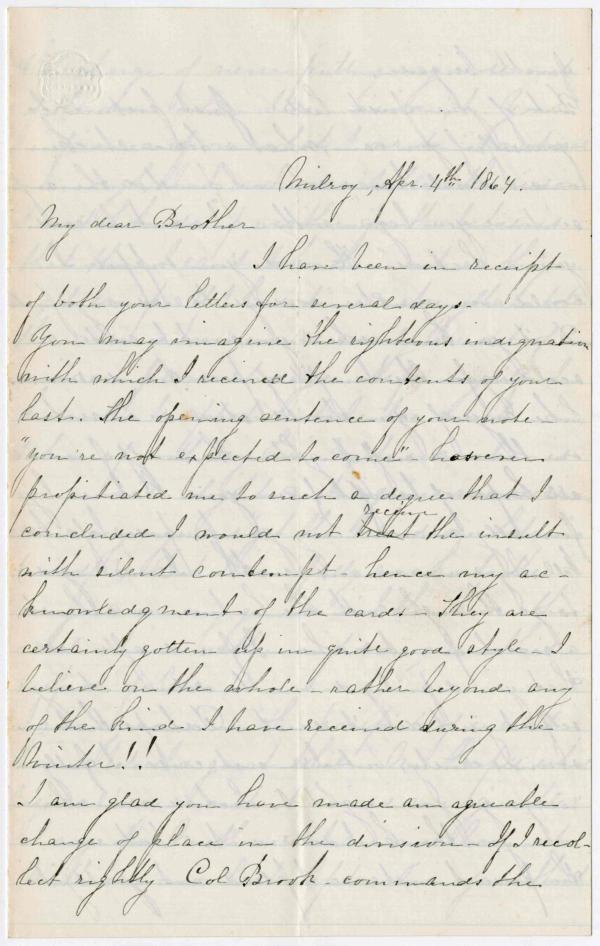 Milroy, Apr. 4th 1864.
My dear Brother
I have been in receipt
of both your letters for several days.
You may imagine the righteous indignation
with which I received the contents of your
last. The opening sentence of your note -
"you're not expected to come" - however
propitiated me to such a degree that I
receive
concluded I would not treat the insult
with silent contempt - hence my ac-
knowledgment of the cards - They are
certainly gotten up in quite good style - I
believe on the whole - rather beyond any
of the kind I have received during the
Winter!!
I am glad you have made an agreeable
change of place in the division - If I recol-
lect rightly Col Brook - commands the